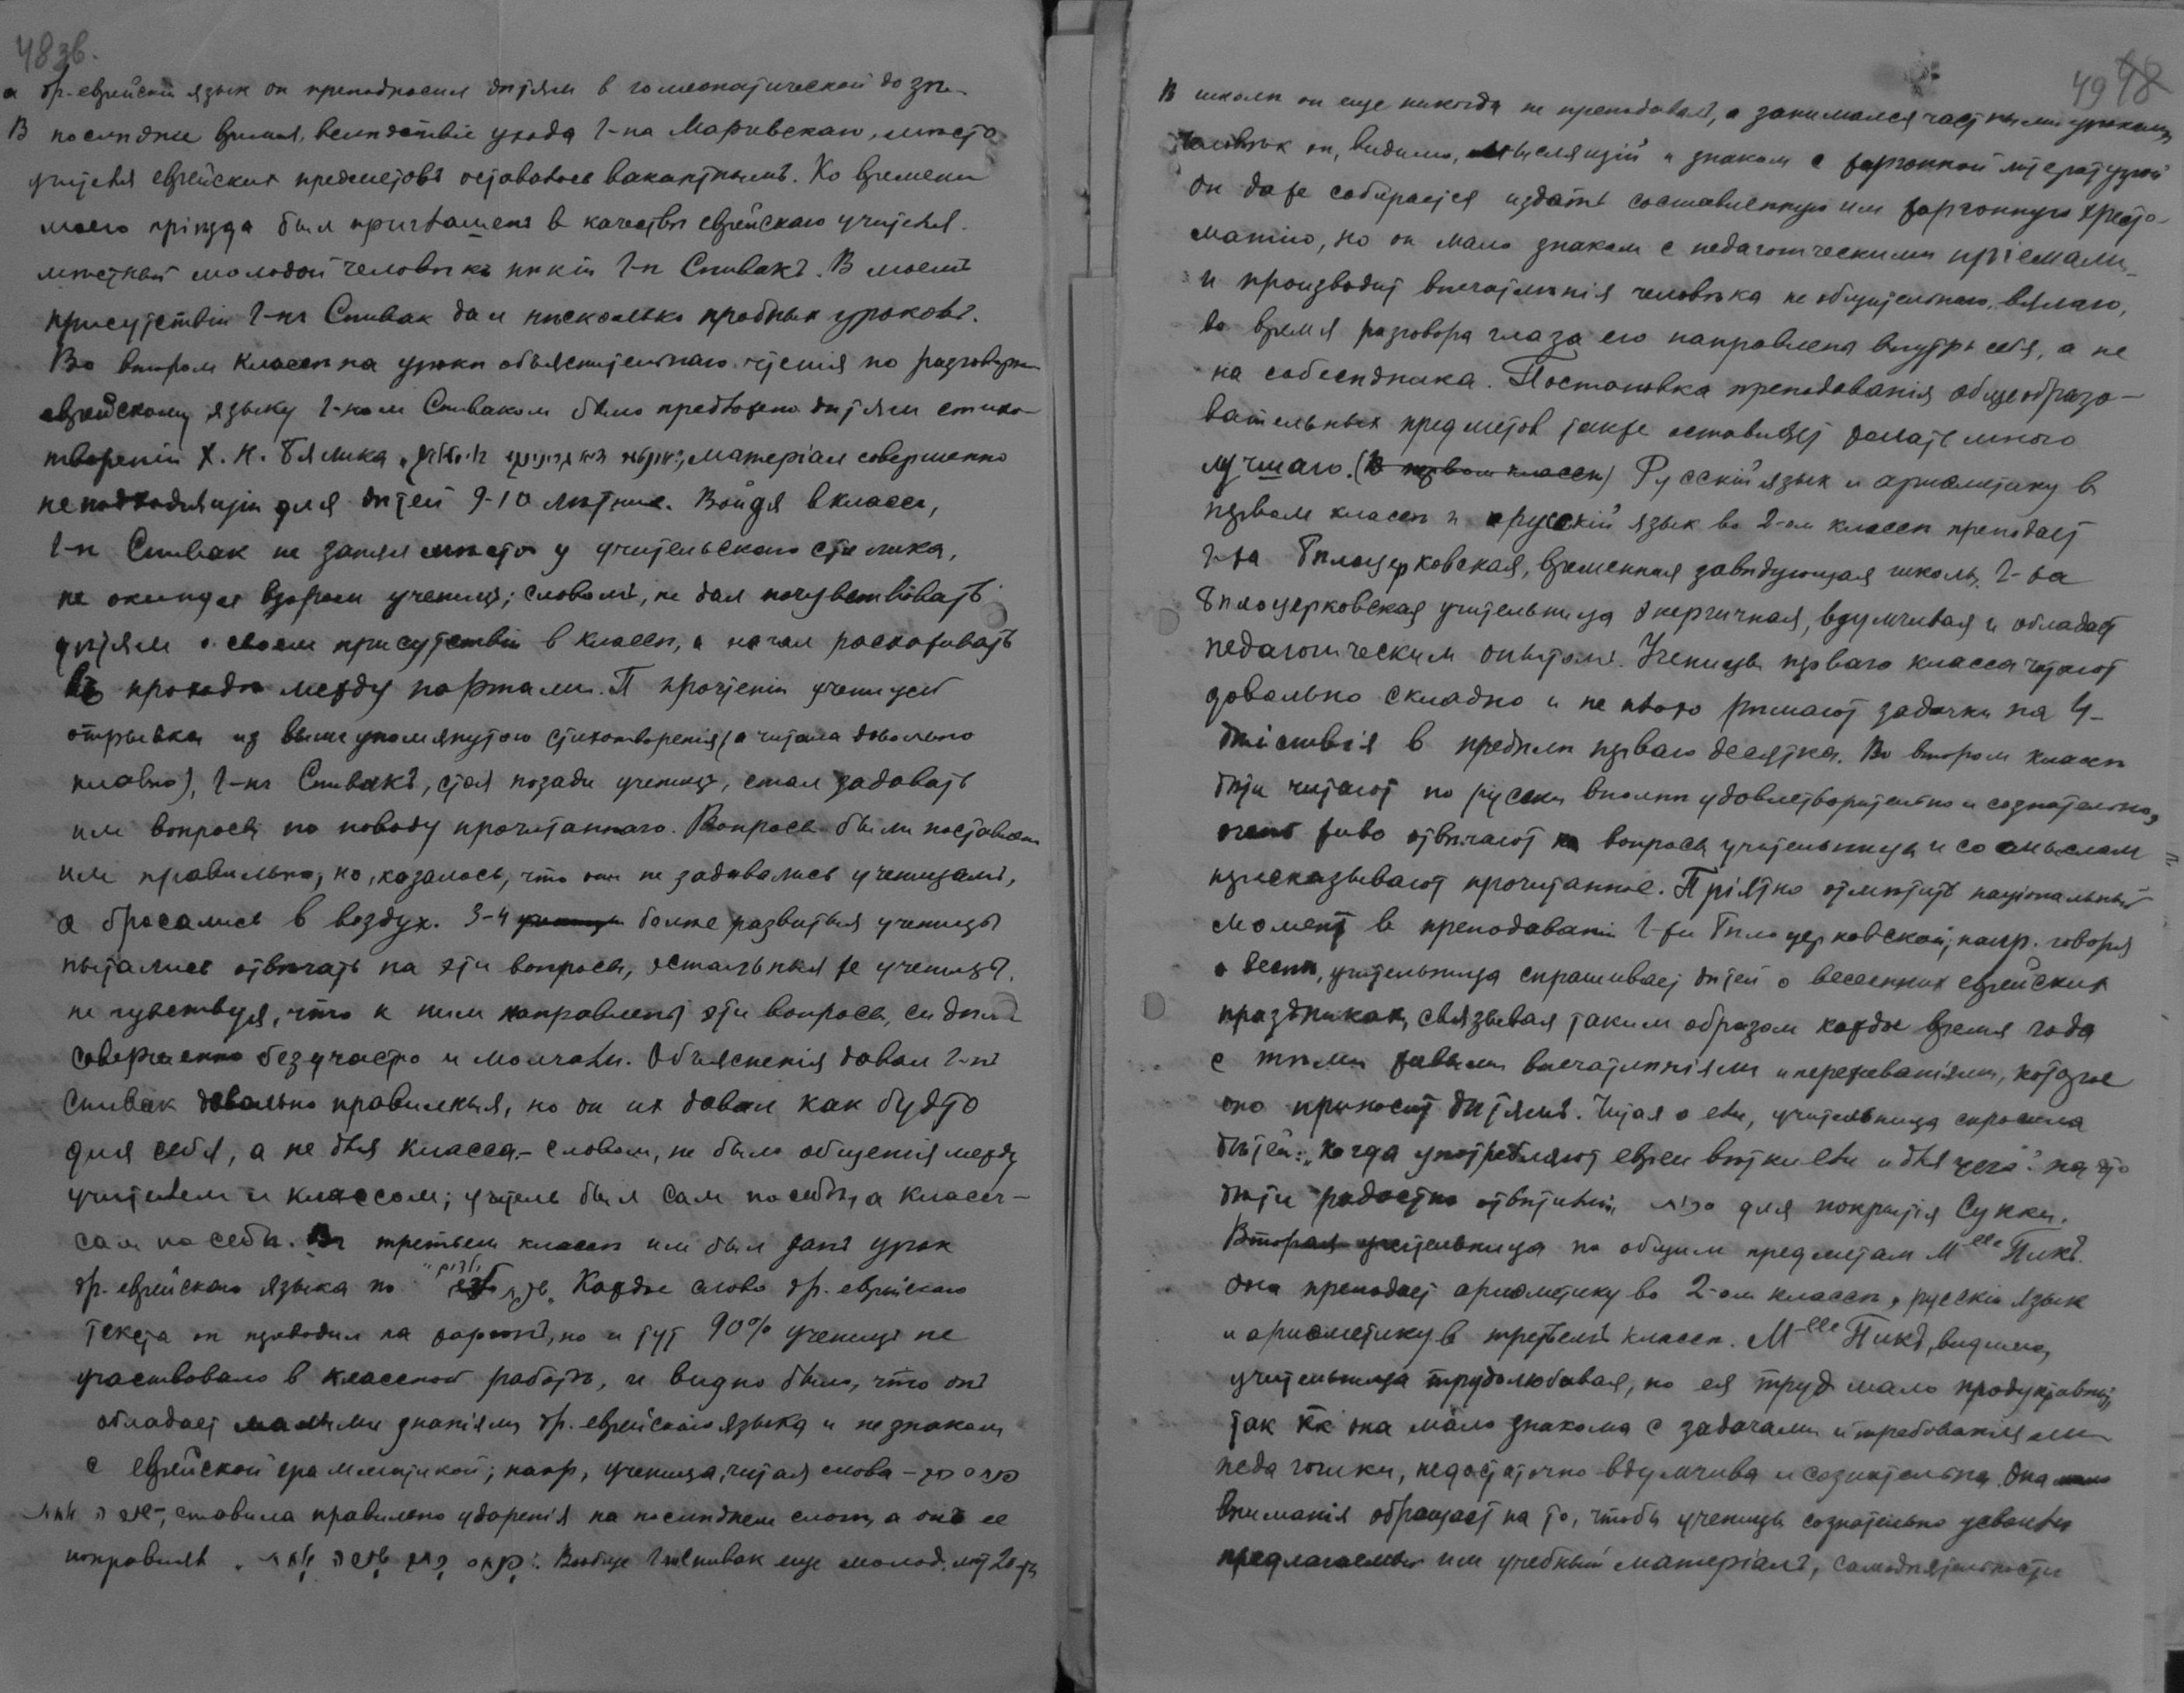 48 зв.
а др.-еврейскiй язык он преподносил дѣтям в гомеопатической дозѣ.
В послѣднее время, вслѣдствiе ухода г-на Маривскаго, мѣсто
учителя еврейских предметовъ оставалось вакантнымъ. Ко времени
моего прiѣзда был приглашенъ в качествѣ еврейскаго учителя
мѣстный молодой человѣкъ нѣкiй г-н Спивакъ. В моемъ
присутствiи г-нъ Спивак дал нѣсколько пробных уроковъ.
Во втором классѣ на урокѣ объяснительнаго чтенiя по разговорно
еврейскому языку г-ном Спиваком было предложено дѣтям стихо-
творенiе Х. Н. Бялика материал совершенно
неподходящiй для дѣтей 9-10 лѣтних. Войдя в классъ,
г-н Спивак не занял мѣста у учительскаго столика,
не окинул взором учениц; словомъ, не дал почувствовать
дѣтям о своем присутствiи в классѣ, а начал расхаживать
въ проходѣ между партами. П прочтенiи ученицей
отрывка из вышеупомянутого стихотворенiя (а читала довольно
плавно), г-нъ Спивакъ, стоя позади учениц, стал задавать
им вопросы по поводу прочитаннаго. Вопросы были поставлены
им правильно, но, казалось, что они не задавались ученицамъ,
а бросались в воздух. 3-4 болѣе развитыя ученицы
пытались отвѣчать на эти вопросы, остальныя же ученицы,
не чувствуя, что к ним направлены эти вопросы, сидѣли
совершенно безучастно и молчали. Объясненiя давал г-нъ
Спивак довольно правильныя, но он их давал как будто
для себя, а не для класса.- словом, не было общенiя между
учителем и классом; учитель был сам по себѣ, а классъ-
сам по себѣ. Въ третьем классѣ им был данъ урок
др. еврейскаго языка по Каждое слово др. еврейскаго
текста он переводил на жаргонъ, но и тут 90% ученицъ не
участвовало в классной работѣ, и видно было, что онъ
обладает малыми знанiями др. еврейскаго языка и не знаком
с еврейской грамматикой; напр, ученица, читая слова -
ставила правильно ударенiя на послѣднем слогѣ, а онъ ее
поправлял Вообще г-н Спивак еще молод, лѣт 20-ти

49 48
В школѣ он еще никогда не преподавал, а занимался частными уроками,
человѣк он, видимо, мыслящiй и знаком с жаргонной литературой
Он даже собирается издать составленную им жаргонную хресто-
матiю, но он мало знаком с педагогическими прiемами
и производит впечатлѣнiя человѣка не общительнаго, вялаго,
во время разговора глаза его направлены внутрь себя, а не
на собесѣдника. Постановка преподаванiя общеобразо-
вательных предметов также оставляет желать много
лучшаго. (В первом классѣ) Русскiй язык и арифметику в
первом классѣ и русскiй язык во 2-ом классѣ преподает
г-жа Бѣлоцерковская, временная завѣдующая школы. г-жа
Бѣлоцерковская учительница энергичная, вдумчивая и обладает
педагогическим опытомъ. Ученицы перваго класса читают
довольно складно и не плохо рѣшают задачки на 4-
дѣйствiя в предѣлѣ перваго десятка. Во втором классѣ
дѣти читают по русски вполнѣ удовлетворительно и сознательно,
очень живо отвѣчают на вопросы учительницы и со смыслом
пересказывают прочитанное. Прiятно отмѣтить нацiональный
момент въ преподаванiи г-жи Бѣлоцерковской; напр. говоря
о веснѣ, учительница спрашивает дѣтей о весенних еврейских
праздниках, связывая таким образом каждое время года
с тѣми живыми впечатлѣнiями и переживанiями, которые
оно приносит дѣтямъ. Читая о ели, учительница спросила
дѣтей: „Когда употребляют евреи вѣтки ели и для чего? на что
дѣти радостно отвѣтили, סוכות для покрытiя Сукки.
Вторая учительница по общим предметам М-elle Пикъ.
Она преподает арифметику во 2-ом классѣ, русскiй язык
и арифметику в третьемъ классѣ. М-elle Пикъ, видимо,
учительница трудолюбивая, но ея труд мало продуктивный,
так кк она мало знакома с задачами и требованiями
педагогики, недостаточно вдумчива и сознательна. Она мало
вниманiя обращает на то, чтобы ученицы сознательно усвоили
предлагаемый им учебный матерiалъ, самодѣятельности